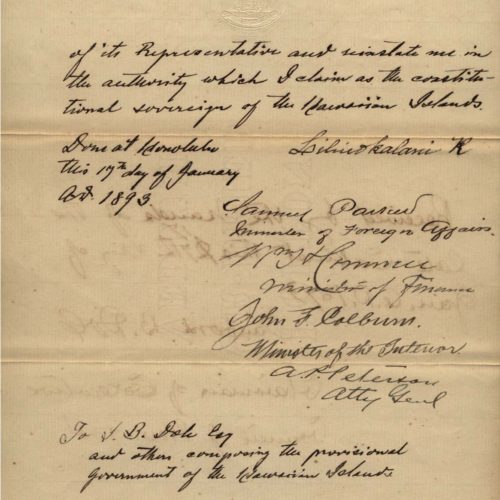 of its Representative and reinstate me in
the authority which I claim as the constitu-
tional sovereign of the Hawaiian Islands.
Done at Honolulu
this 17th day of January
A.D. 1893
Liliuokalani R
Samuel Parker
Minister of Foreign Affairs.
Wm H Cornwell
Minister of Finance
John F. Colburn.
Minister of the Interior.
A. P. Peterson
Atty Genl
To S. B. Dole Esq
and others composing the provisional
Government of the Hawaiian Islands